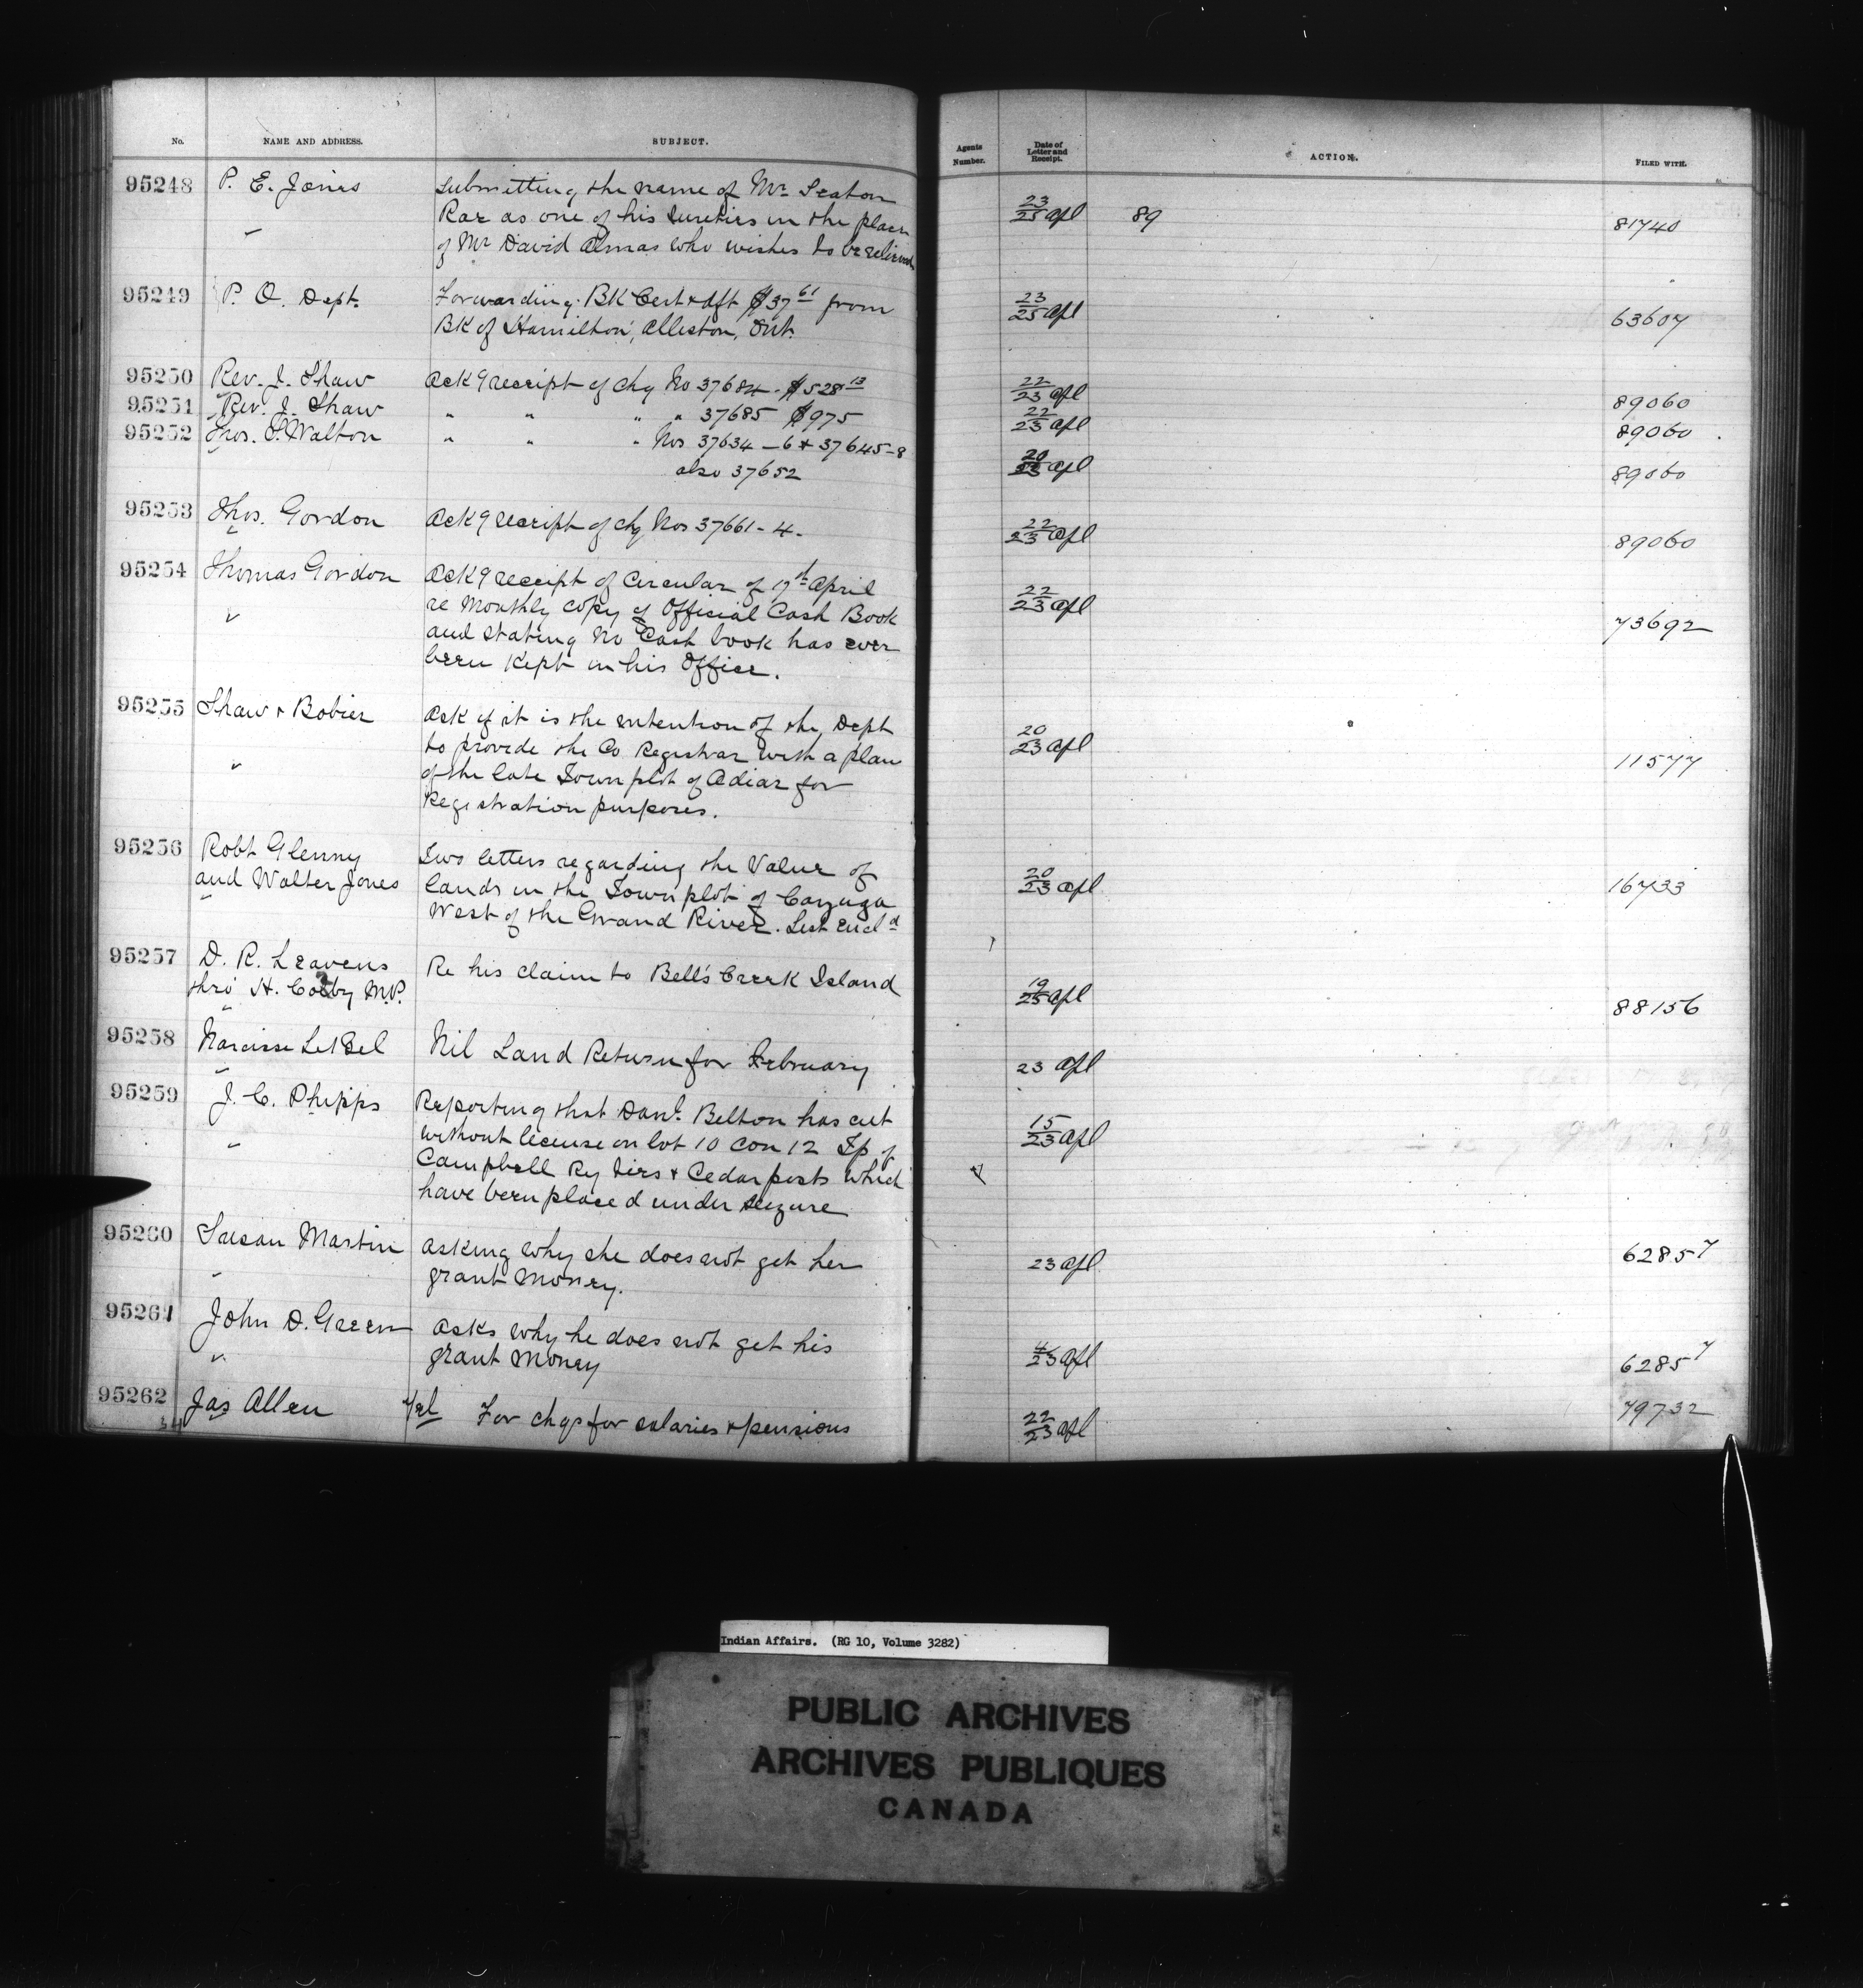 No. NAME AND ADDRESS. SUBJECT. Agents Number. Date of Letter and Receipt. ACTION. FILED WITH.
95248 P. E. Jones Submitting the name of Mr. Seaton 23/25 Apl 89 81740
Rae as one of his sureties in the place
of Mr David Almas who wishes to be relieved
95249 P. O. Dept. Forwarding BK Cert & dft $37 61 from 23/25 Apl 63607
BK of Hamilton, Alliston, Ont.
95250 Rev. J. Shaw Ack g receipt of chq No 37684 - $528 13 22/23 Apl 89060
95251 Rev. J. Shaw " " " " 37685 $975 22/23 Apl 89060
95252 Thos. S. Walton " " " Nos 37634 - 6 & 37645-8 20/23 Apl 89060
also 37652
95253 Thos. Gordon Ack g receipt of chq Nos 37661 - 4. 22/23 Apl 89060
95254 Thomas Gordon Ack g receipt of Circular of 17th April 22/23 Apl 73692
re Monthly copy of Official Cash Book
and stating no Cash book has ever
been kept in his Office.
95255 Shaw & Bobier Ask if it is the intention of the Dept 20/23 Apl 11577
to provide the Co Registrar with a plan
of the late Town plot of Adiar for
Registration purposes.
95256 Robt Glenny Two letters regarding the Value of 20/23 Apl 16733
and Walter Jones lands in the Town plot of Cayuga
West of the Grand River. List Encl d
95257 D. R. Leavens Re his claim to Bell's Creek Island 19/25 Apl 88156
thro' H. Colby M.P.
95258 Narcisse LeBel Nil Land Return for February 23 Apl
95259 J. C. Phipps Reporting that Danl. Belton has cut 15/23 Apl
without license on lot 10 Con 12 Tp of
Campbell Ry tiers & Cedar posts which
have been placed under seizure
95260 Susan Martin Asking why she does not get her 23 Apl 62857
grant money.
95261 John D. Green Asks why he does not get his 4/23 Apl 62857
grant money
95262 Jas Allen Tel For chqs for salaries & pensions 22/23 Apl 79732
Indian Affairs. (RG 10, Volume 3282)
PUBLIC ARCHIVES
ARCHIVES PUBLIQUES
CANADA